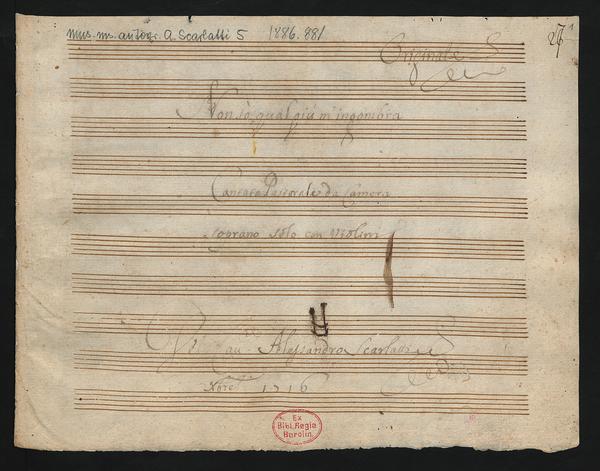 Mus. ms. autogr. A. Scarlatti 5 1886.881
Originale
27
Non sò qual più m'ingombra
Cantata Pastorale da Camera
Soprano Solo con Violini
Del Cau. Alessandro Scarlatti
Xbre 1716
Ex
Bibl. Regia
Berolin.